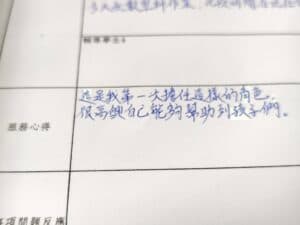 輔導學生4
這是我第一次擔任這樣的角色，
服務心得
很高興自己能夠幫助到孩子們。
事項問題反應